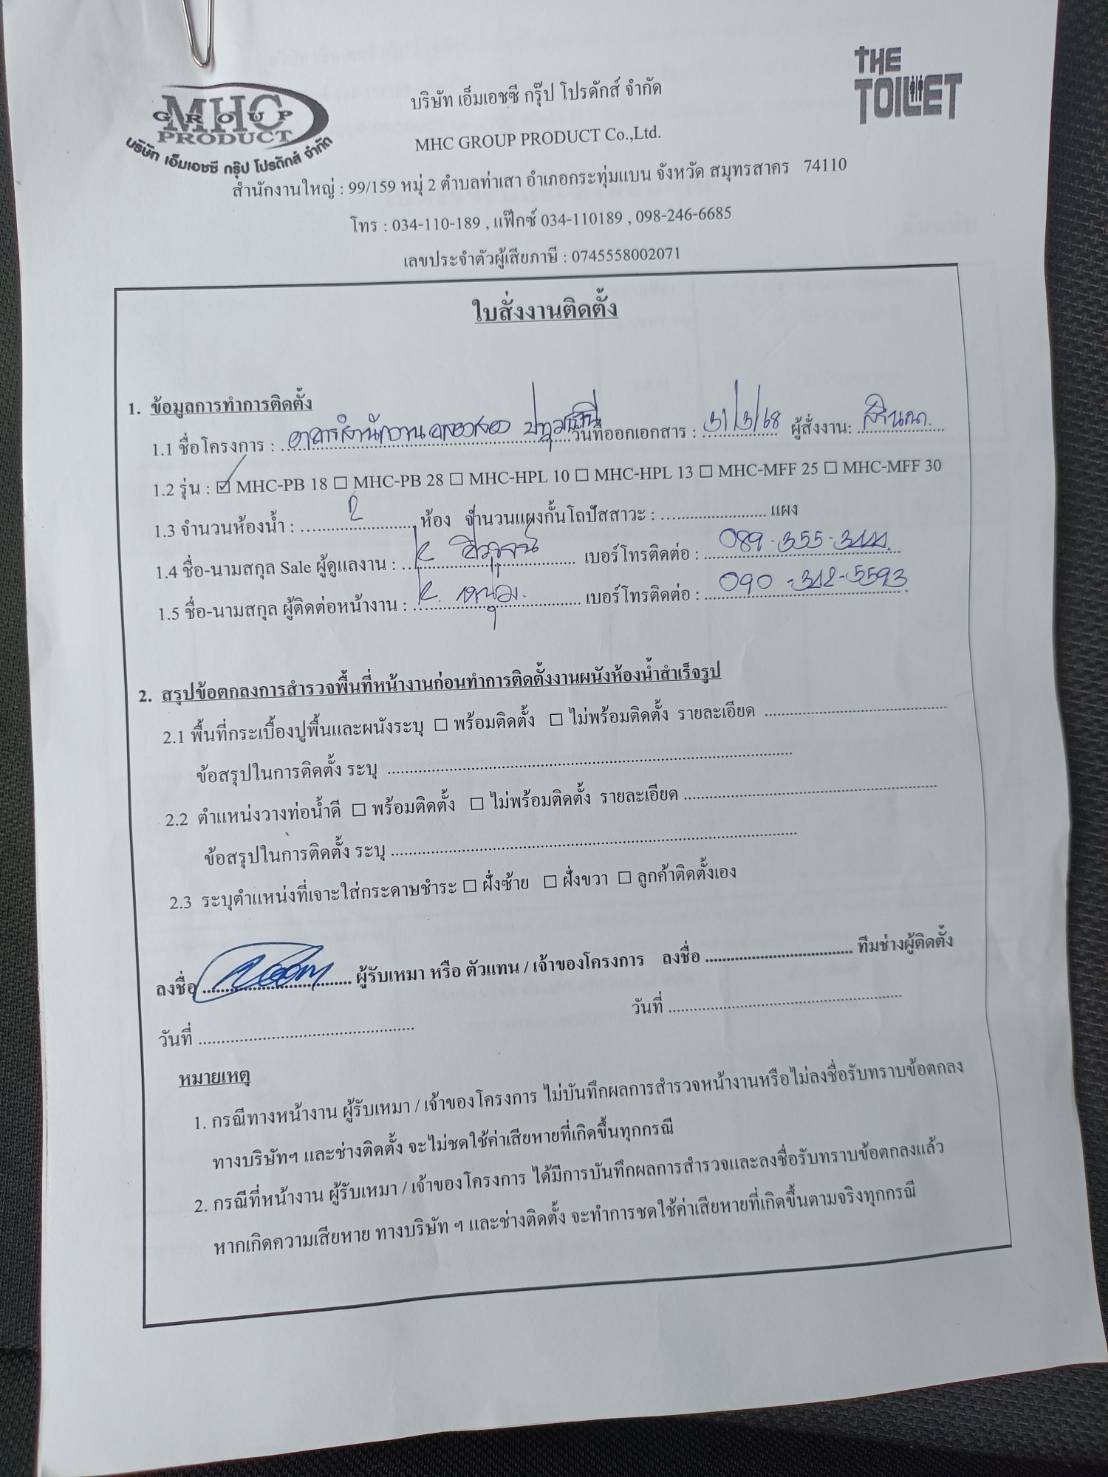 MHC
GROUP
PRODUCT
บริษัท เอ็มเอชซี กรุ๊ป โปรดักส์ จำกัด
THE
TOILET
บริษัท เอ็มเอชซี กรุ๊ป โปรดักส์ จำกัด
MHC GROUP PRODUCT Co.,Ltd.
สำนักงานใหญ่ : 99/159 หมู่ 2 ตำบลท่าเสา อำเภอกระทุ่มแบน จังหวัด สมุทรสาคร 74110
โทร : 034-110-189 , แฟ็กซ์ 034-110189 , 098-246-6685
เลขประจำตัวผู้เสียภาษี : 0745558002071
ใบสั่งงานติดตั้ง
1. ข้อมูลการทำการติดตั้ง
1.1 ชื่อโครงการ : อาคารสำนักงาน คลองสอง ปทุมธานี วันที่ออกเอกสาร : 31/3/68 ผู้สั่งงาน:
1.2 รุ่น : ☑ MHC-PB 18 ☐ MHC-PB 28 ☐ MHC-HPL 10 ☐ MHC-HPL 13 ☐ MHC-MFF 25 ☐ MHC-MFF 30
1.3 จำนวนห้องน้ำ : 2 ห้อง จำนวนแผงกั้นโถปัสสาวะ : .................... แผง
1.4 ชื่อ-นามสกุล Sale ผู้ดูแลงาน : K. เบอร์โทรติดต่อ : 089-355-3444
1.5 ชื่อ-นามสกุล ผู้ติดต่อหน้างาน : K. หนุ่ม. เบอร์โทรติดต่อ : 090-312-5593
2. สรุปข้อตกลงการสำรวจพื้นที่หน้างานก่อนทำการติดตั้งงานผนังห้องน้ำสำเร็จรูป
2.1 พื้นที่กระเบื้องปูพื้นและผนังระบุ ☐ พร้อมติดตั้ง ☐ ไม่พร้อมติดตั้ง รายละเอียด ....................
ข้อสรุปในการติดตั้ง ระบุ ....................
2.2 ตำแหน่งวางท่อน้ำดี ☐ พร้อมติดตั้ง ☐ ไม่พร้อมติดตั้ง รายละเอียด ....................
ข้อสรุปในการติดตั้ง ระบุ ....................
2.3 ระบุตำแหน่งที่เจาะใส่กระดาษชำระ ☐ ฝั่งซ้าย ☐ ฝั่งขวา ☐ ลูกค้าติดตั้งเอง
ลงชื่อ .................... ผู้รับเหมา หรือ ตัวแทน / เจ้าของโครงการ ลงชื่อ .................... ทีมช่างผู้ติดตั้ง
วันที่ .................... วันที่ ....................
หมายเหตุ
1. กรณีทางหน้างาน ผู้รับเหมา / เจ้าของโครงการ ไม่บันทึกผลการสำรวจหน้างานหรือไม่ลงชื่อรับทราบข้อตกลง
ทางบริษัทฯ และช่างติดตั้ง จะไม่ชดใช้ค่าเสียหายที่เกิดขึ้นทุกกรณี
2. กรณีที่หน้างาน ผู้รับเหมา / เจ้าของโครงการ ได้มีการบันทึกผลการสำรวจและลงชื่อรับทราบข้อตกลงแล้ว
หากเกิดความเสียหาย ทางบริษัท ฯ และช่างติดตั้ง จะทำการชดใช้ค่าเสียหายที่เกิดขึ้นตามจริงทุกกรณี